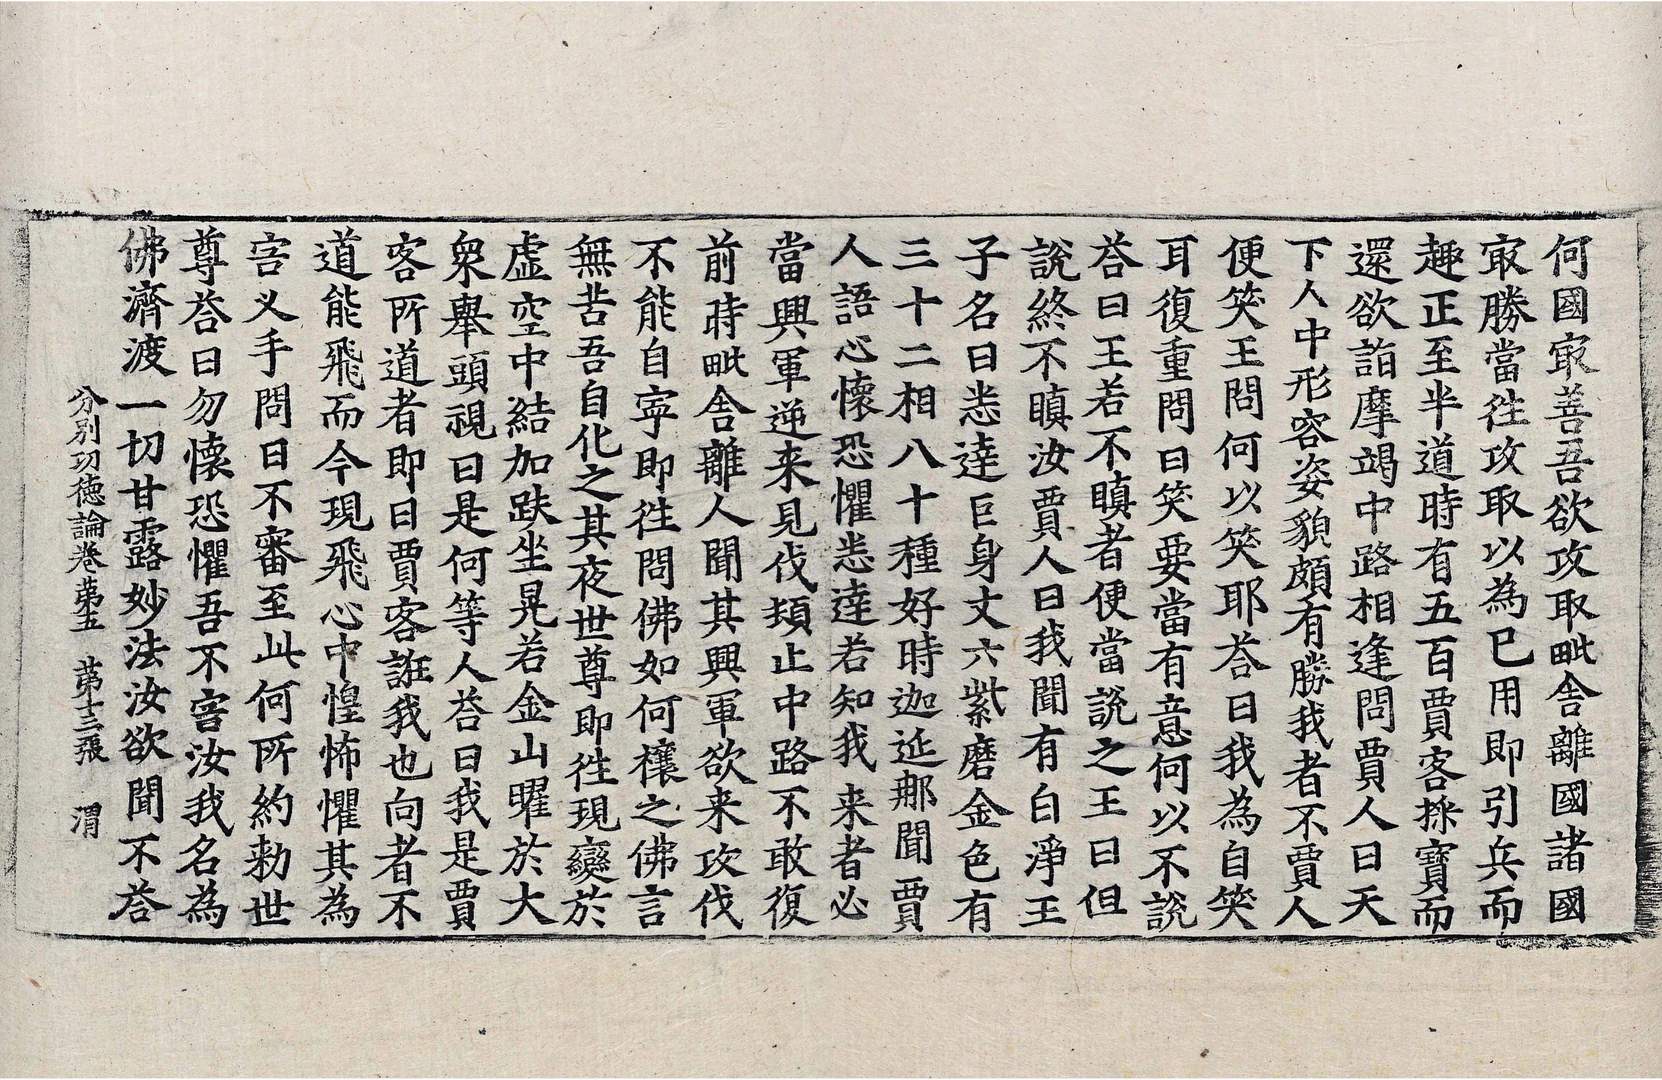 何國冣善吾欲攻取毗舍離國諸國
冣勝當徃攻取以為已用即引兵而
趣正至半道時有五百賈客採寶而
還欲詣摩竭中路相逢問賈人曰天
下人中形容姿貌頗有勝我者不賈人
便笑王問何以笑耶荅曰我為自笑
耳復重問曰笑要當有意何以不說
荅曰王若不瞋者便當說之王曰但
說終不瞋汝賈人曰我聞有白淨王
子名曰悉達巨身丈六紫磨金色有
三十二相八十種好時迦延那聞賈
人語心懷恐懼悉達若知我来者必
當興軍逆来見伐頬止中路不敢復
前時毗舍離人聞其興軍欲来攻伐
不能自寧即徃問佛如何穰之佛言
無苦吾自化之其夜世尊即徃現變於
虛空中結加趺坐晃若金山曜於大
衆舉頭視曰是何等人荅曰我是賈
客所道者即曰賈客誑我也向者不
道能飛而今現飛心中惶怖懼其為
害义手問曰不審至此何所約勑世
尊荅曰勿懷恐懼吾不害汝我名為
佛濟渡一切甘露妙法汝欲聞不荅
分別功德論卷苐五　苐十三張　渭